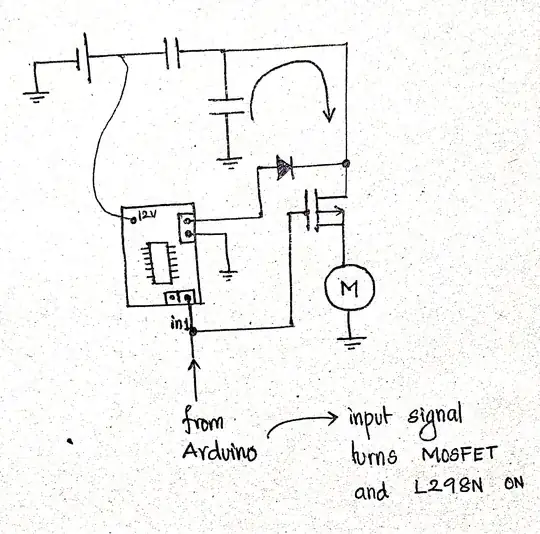 12V
M
in1
from
Arduino
input signal
turns MOSFET
and L298N ON